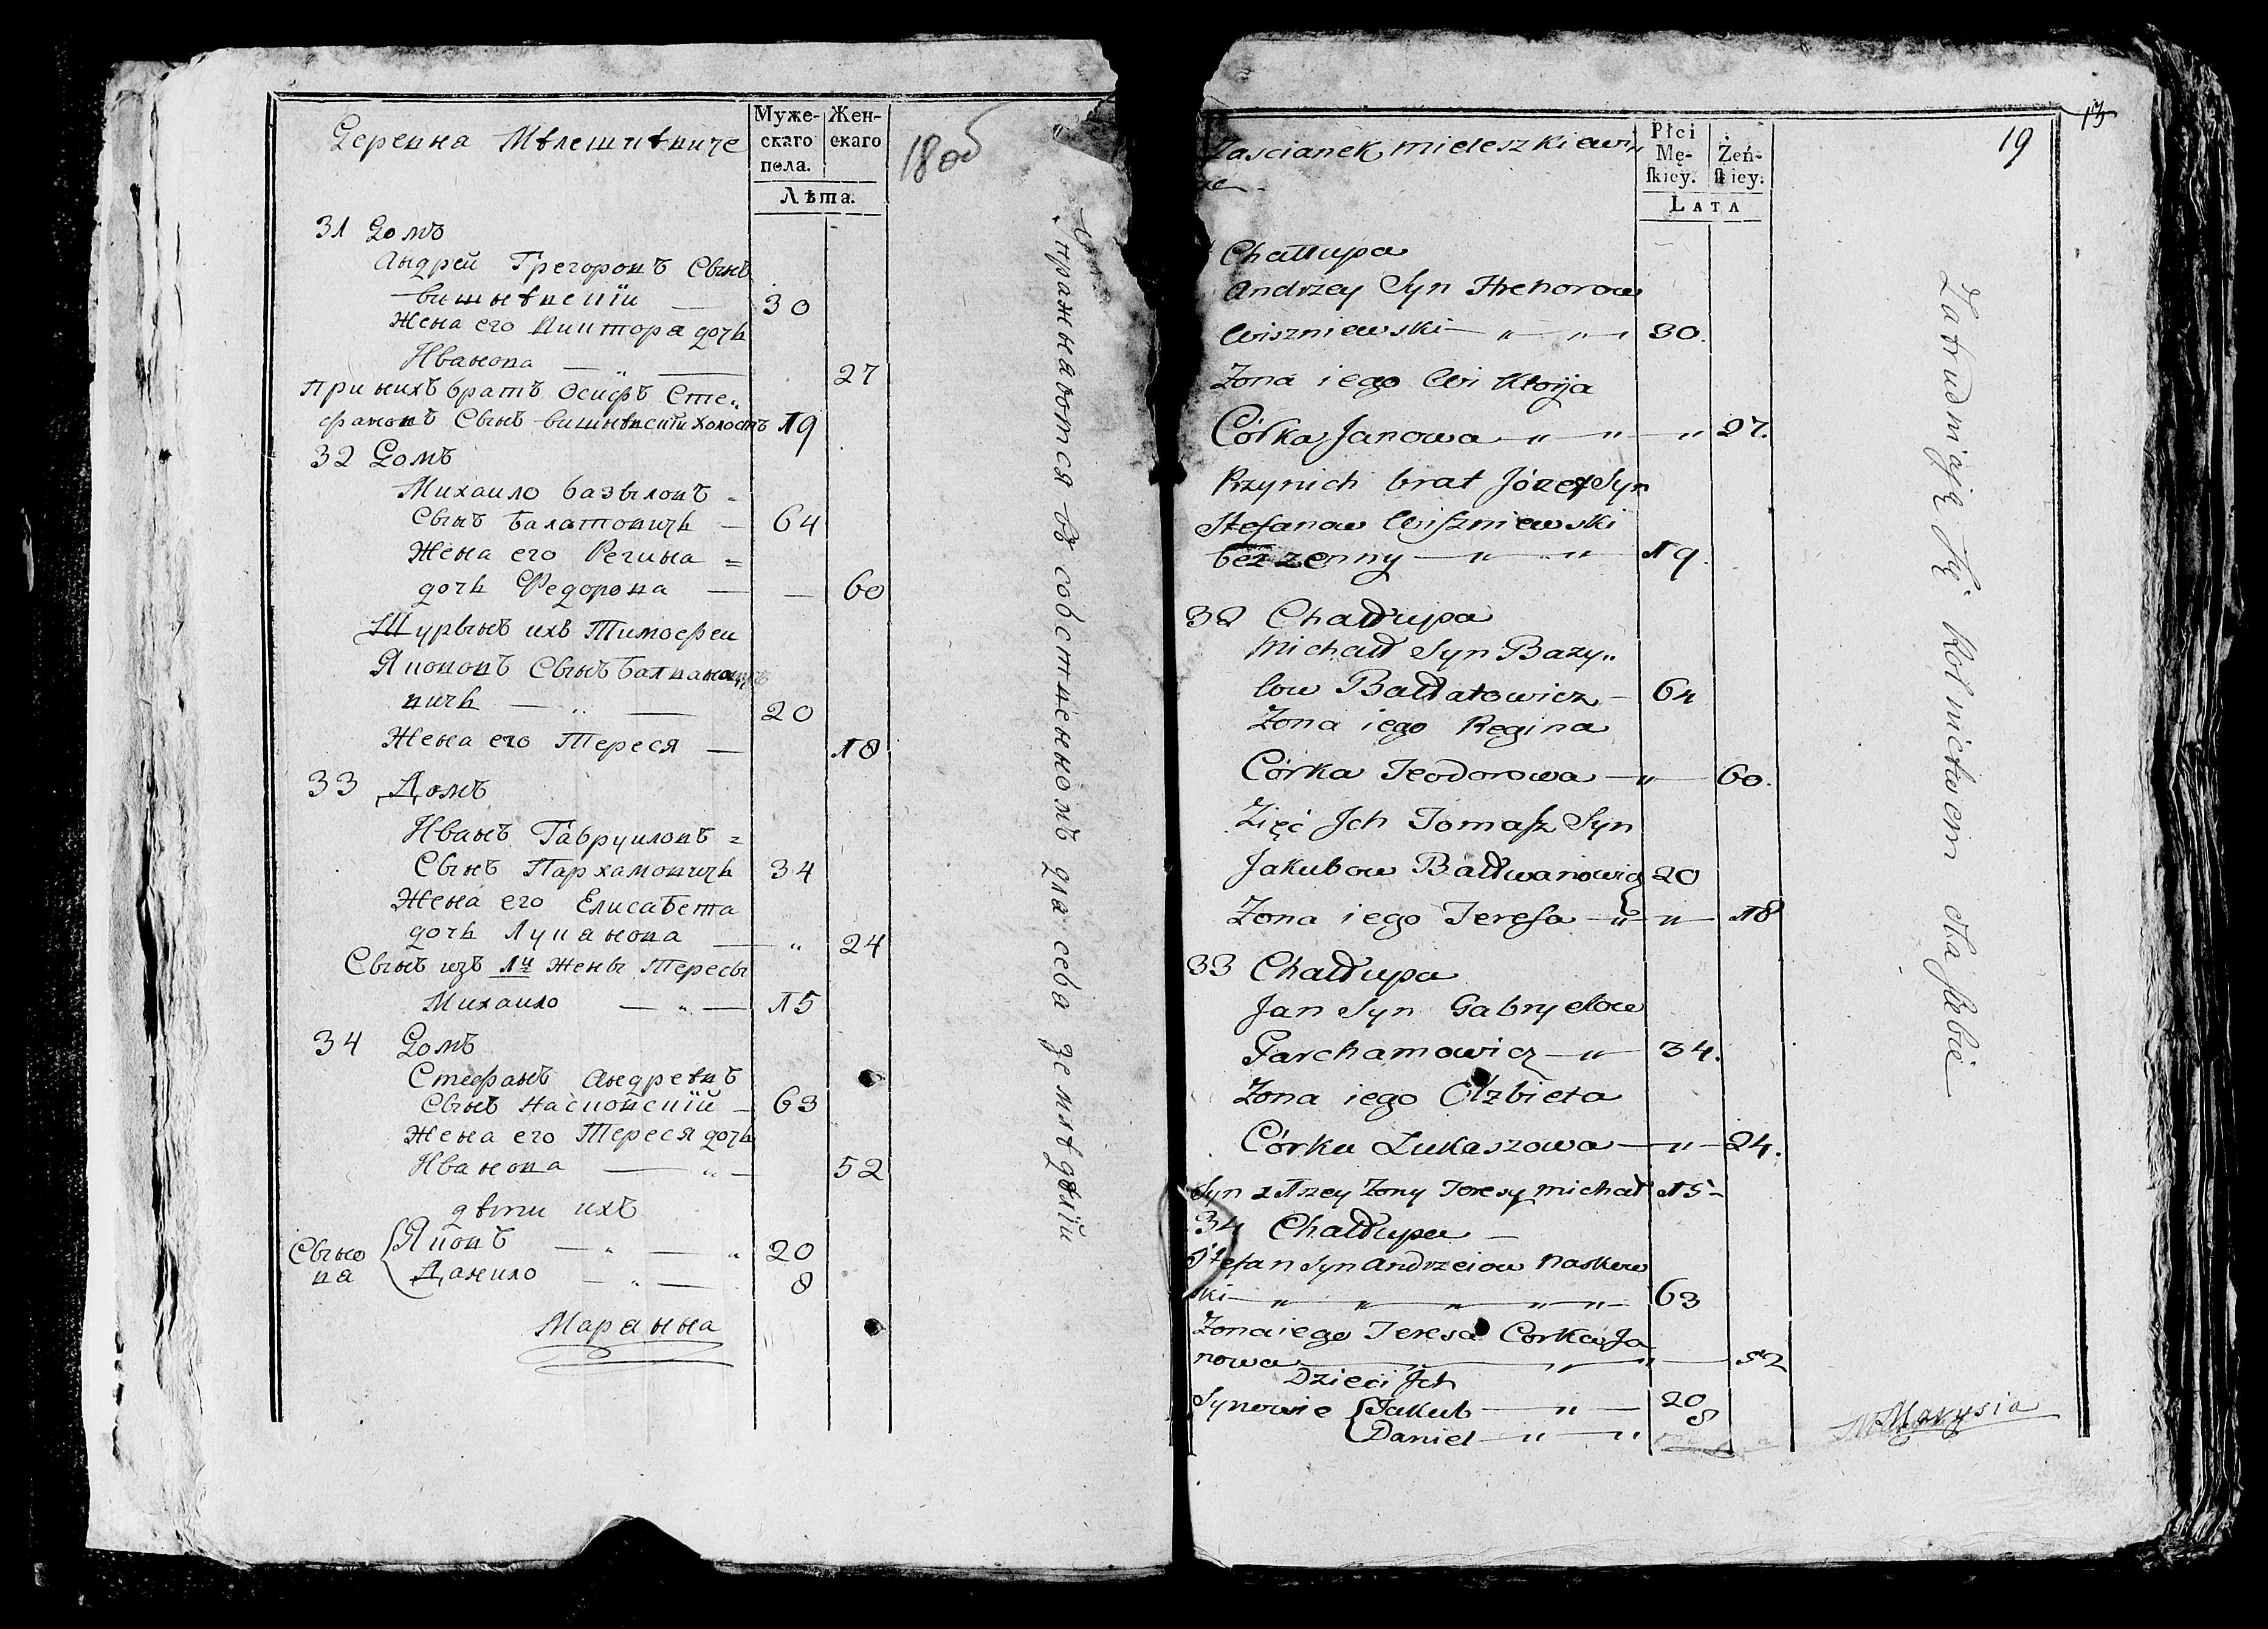 Деревня Мѣлешкѣвиче
Муже-
скаго
пола.
Жен-
скаго
Лѣта.
18 об
31 Домъ
Андрей Грегоровъ Сынъ
вишнѣвскiй — 30
Жена его Викторя дочь
Иванова — „ — 27
При нихъ братъ Осифъ Сте„
фановъ Сынъ вишнѣвскiй холостъ 19
32 Домъ
Михаило базыловъ =
Сынъ балатовичь — 64
Жена его Регина =
дочь Федорова — — 60
Шурынъ ихъ Тимофеи
Яковов Сынъ балвано
вичь — „ — 20
Жена его Тереся — 18
33 Домъ
Иванъ Гавруиловъ =
Сынъ Пархамовичь 34
Жена его Елисабета
дочь Луканова — „ 24
Сынъ изъ 1й жены Тересы
Михаило — „ — 15
34 Домъ
Стефанъ Андреевъ
Сынъ насковскiй — 63
Жена его Тереся дочь
Иванова — „ — 52
дѣти ихъ
Сыно
ва
Яковъ — „ — „ 20
Данило — „ — 8
Марьина
Упражняются въ собственномъ для себя земледѣлiи
Zascianek Mieleszkiewi
cze
Płci
Mę-
ſkiey.
Żeń-
ſkiey.
Lata
19
13
Chałłupa
Andrzey Syn Hrehorow
Wiszniewski — „ — „ — 30.
Zona iego Wiktorja
Córka Janowa „ — „ — „ 27.
Przynich brat Józef Syn
Stefanow Wiſzniewski
bezzenny — „ — „ — 19.
32 Chałłupa
Michałł Syn Bazy„
low Bałłatowicz — 64
Zona iego Regina
Córka Teodorowa — „ — 60.
Zięć Jch Tomaſz Syn
Jakubow Bałłwanowicz 20
Zona iego Tereſa — „ — „ — 18
33 Chałłupa
Jan Syn Gabryelow
Parchamowicz — „ — 34.
Zona iego Elzbieta
Córka Lukaszowa — „ — 24.
Syn z 1szey Zony Teresy Michał 15 —
34 Chałłupa —
Stefan Syn Andrzeiow Naskow
ski — „ „ „ „ „ — 63
Zona iego Teresa Corka Ja
nowa — „ „ — 52
Dzieci Jch
Synowie
Jakub — „ — 20
Daniel — „ — „ 8
Zatrudniaią Się Rolnictwem dla ſiebie
Marysia